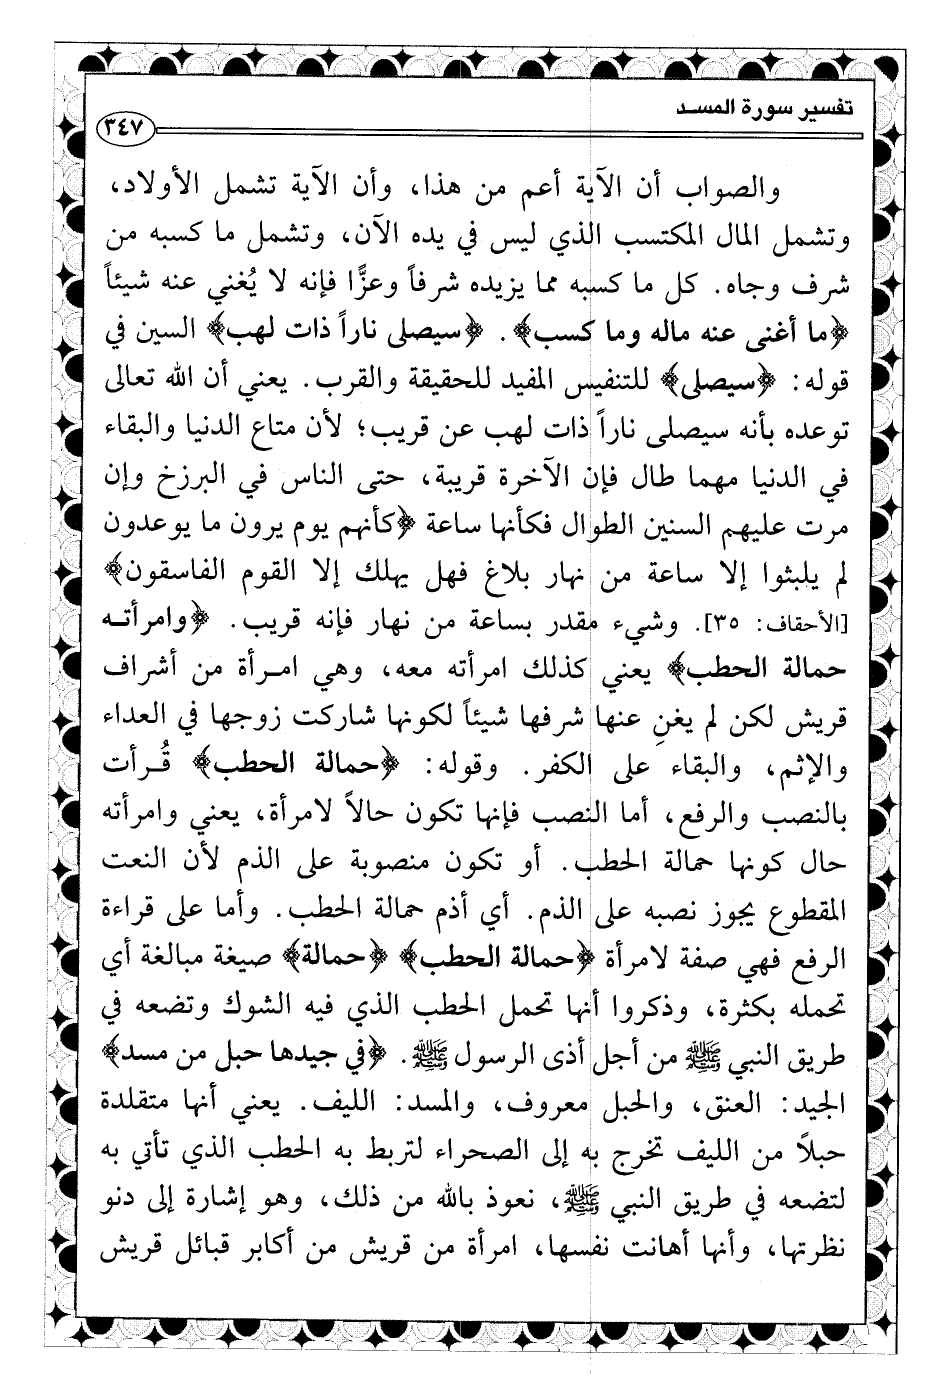 تفسير سورة المسد
٣٤٧
والصواب أن الآية أعم من هذا، وأن الآية تشمل الأولاد،
وتشمل المال المكتسب الذي ليس في يده الآن، وتشمل ما كسبه من
شرف وجاه. كل ما كسبه مما يزيده شرفاً وعزًّا فإنه لا يُغني عنه شيئاً
﴿ما أغنى عنه ماله وما كسب﴾. ﴿سيصلى ناراً ذات لهب﴾ السين في
قوله: ﴿سيصلى﴾ للتنفيس المفيد للحقيقة والقرب. يعني أن الله تعالى
توعده بأنه سيصلى ناراً ذات لهب عن قريب؛ لأن متاع الدنيا والبقاء
في الدنيا مهما طال فإن الآخرة قريبة، حتى الناس في البرزخ وإن
مرت عليهم السنين الطوال فكأنها ساعة ﴿كأنهم يوم يرون ما يوعدون
لم يلبثوا إلا ساعة من نهار بلاغ فهل يهلك إلا القوم الفاسقون﴾
[الأحقاف: ٣٥]. وشيء مقدر بساعة من نهار فإنه قريب. ﴿وامرأته
حمالة الحطب﴾ يعني كذلك امرأته معه، وهي امرأة من أشراف
قريش لكن لم يغنِ عنها شرفها شيئاً لكونها شاركت زوجها في العداء
والإثم، والبقاء على الكفر. وقوله: ﴿حمالة الحطب﴾ قُرأت
بالنصب والرفع، أما النصب فإنها تكون حالاً لامرأة، يعني وامرأته
حال كونها حمالة الحطب. أو تكون منصوبة على الذم لأن النعت
المقطوع يجوز نصبه على الذم. أي أذم حمالة الحطب. وأما على قراءة
الرفع فهي صفة لامرأة ﴿حمالة الحطب﴾ ﴿حمالة﴾ صيغة مبالغة أي
تحمله بكثرة، وذكروا أنها تحمل الحطب الذي فيه الشوك وتضعه في
طريق النبي ﷺ من أجل أذى الرسول ﷺ. ﴿في جيدها حبل من مسد﴾
الجيد: العنق، والحبل معروف، والمسد: الليف. يعني أنها متقلدة
حبلاً من الليف تخرج به إلى الصحراء لتربط به الحطب الذي تأتي به
لتضعه في طريق النبي ﷺ، نعوذ بالله من ذلك، وهو إشارة إلى دنو
نظرتها، وأنها أهانت نفسها، امرأة من قريش من أكابر قبائل قريش